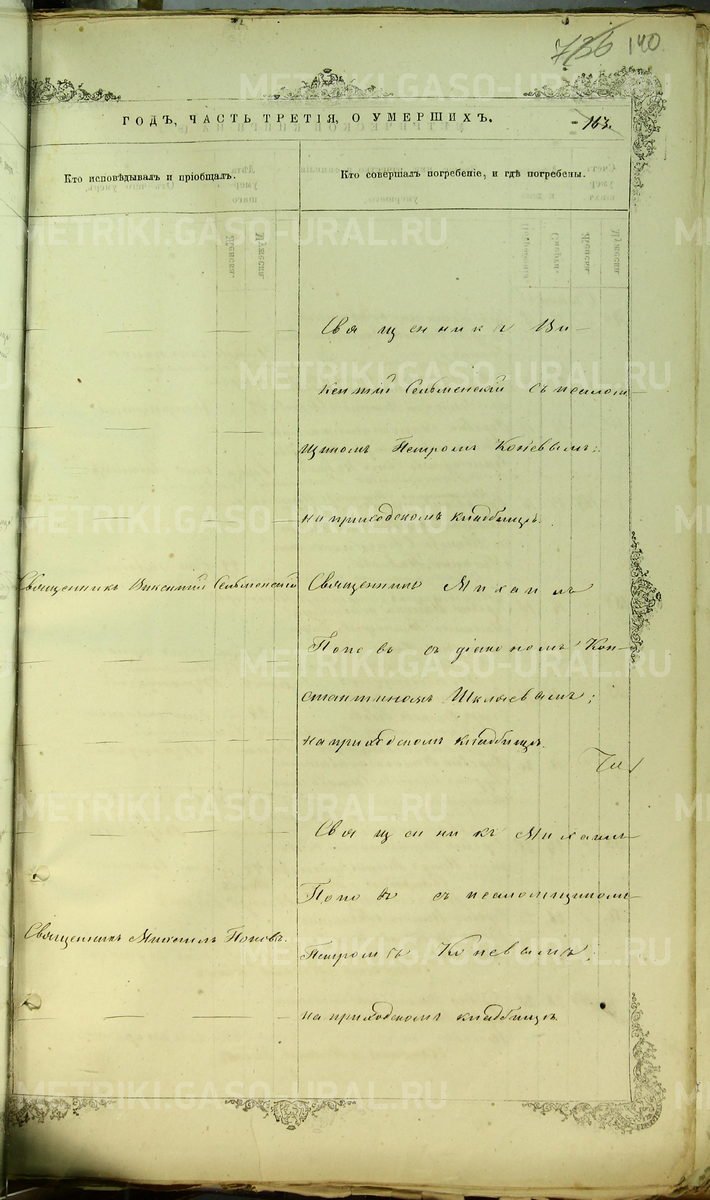 736 140
ГОДЪ, ЧАСТЬ ТРЕТІЯ, О УМЕРШИХЪ.
163.
Кто исповѣдывалъ и пріобщалъ.
Кто совершалъ погребеніе, и гдѣ погребены.
Священникъ Ви-
кентій Сельменскій съ псалом-
щикомъ Петромъ Коневымъ;
на приходскомъ кладбищѣ.
Священникъ Викентій Сельменскій
Священникъ Михаилъ
Поповъ съ діакономъ Кон-
стантиномъ Шкляевымъ;
на приходскомъ кладбищѣ.
Священникъ Михаилъ
Поповъ съ псаломщикомъ
Священникъ Михаилъ Поповъ.
Петромъ Коневымъ;
на приходскомъ кладбищѣ.
METRIKI.GASO-URAL.RU